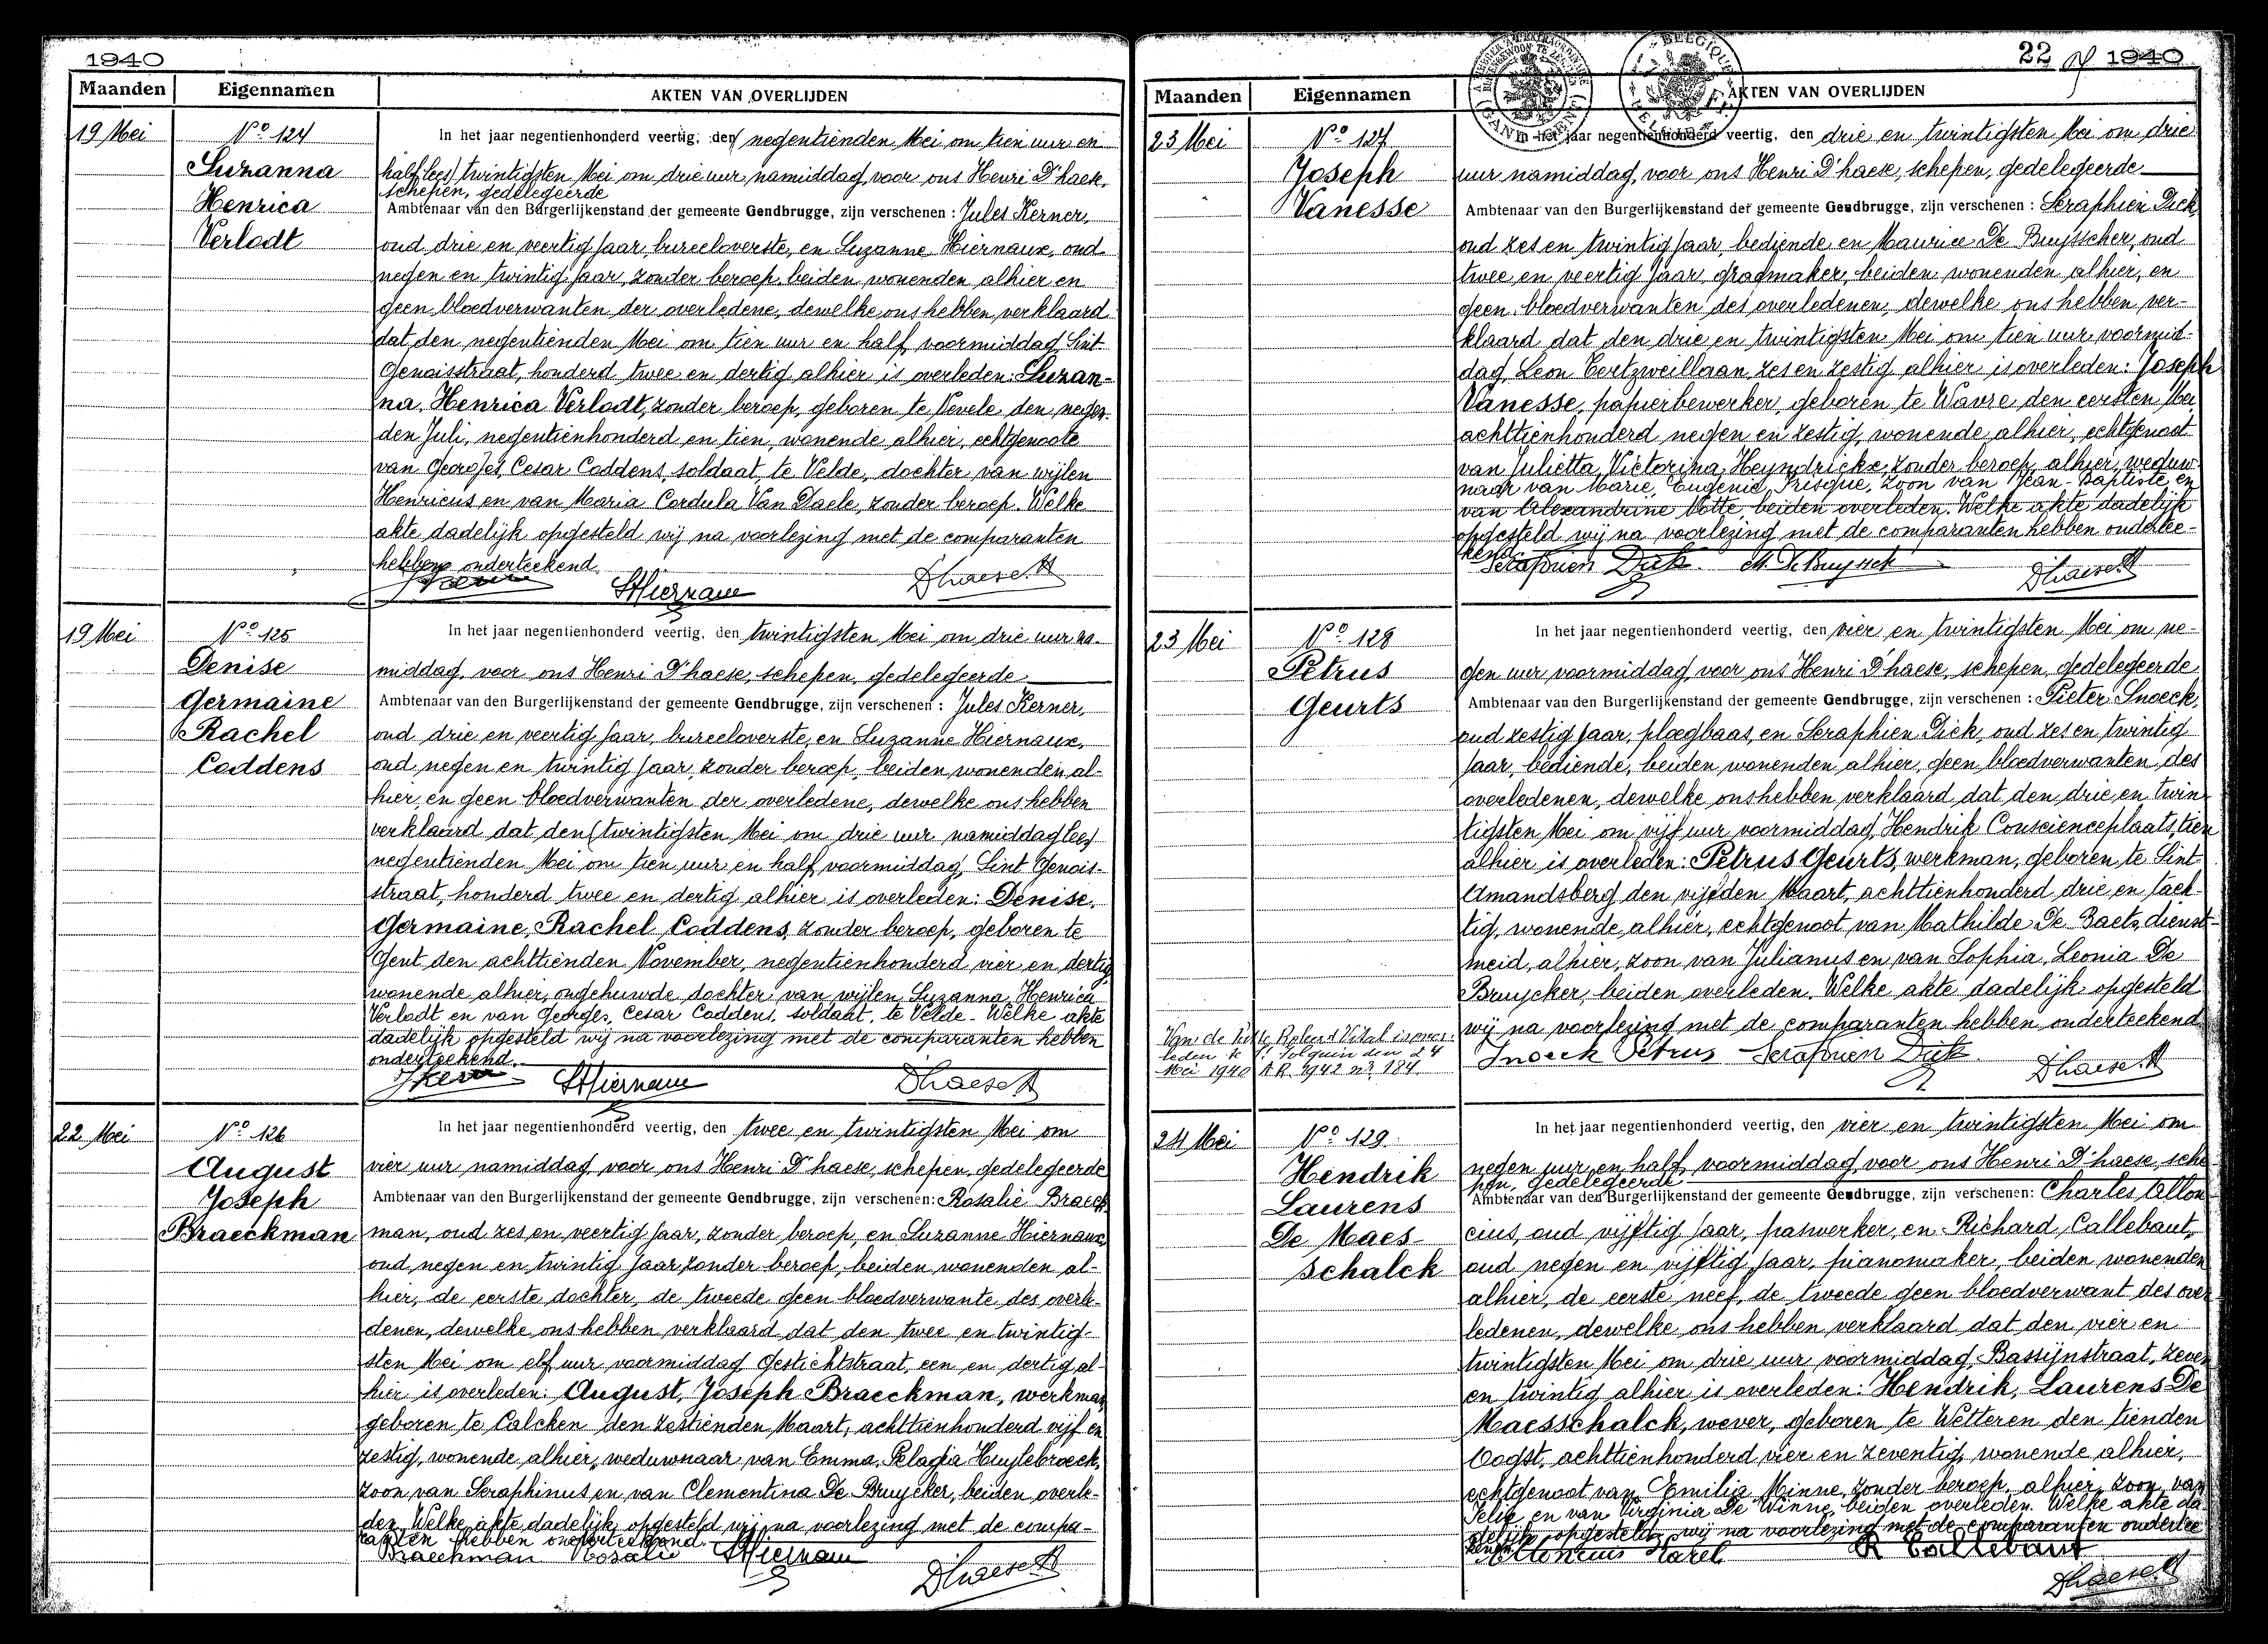 1940
Maanden Eigennamen AKTEN VAN OVERLIJDEN
19 Mei
No 124
Suzanna
Henrica
Verlodt
In het jaar negentienhonderd veertig, den negentienden Mei om tien uur en
half (lees) twintigsten Mei om drie uur namiddag, voor ons Henri D'haese,
schepen, gedelegeerde
Ambtenaar van den Burgerlijkenstand der gemeente Gendbrugge, zijn verschenen : Jules Kerner,
oud drie en veertig jaar, bureeloverste, en Suzanne Hiernaux, oud
negen en twintig jaar, zonder beroep, beiden wonenden alhier en
geen bloedverwanten der overledene, dewelke ons hebben verklaard
dat den negentienden Mei om tien uur en half voormiddag Sint
Genoisstraat, honderd twee en dertig alhier is overleden: Suzan-
na, Henrica Verlodt, zonder beroep, geboren te Nevele den negen-
den Juli, negentienhonderd en tien, wonende alhier, echtgenoote
van Georges, Cesar Coddens, soldaat, te Velde, dochter van wijlen
Henricus en van Maria Cordula Van Daele, zonder beroep. Welke
akte dadelijk opgesteld wij na voorlezing met de comparanten
hebben onderteekend.
SHiernaux D'haese H
19 Mei
No 125
Denise
Germaine
Rachel
Coddens
In het jaar negentienhonderd veertig, den twintigsten Mei om drie uur na-
middag, voor ons Henri D'haese, schepen, gedelegeerde
Ambtenaar van den Burgerlijkenstand der gemeente Gendbrugge, zijn verschenen : Jules Kerner,
oud drie en veertig jaar, bureeloverste, en Suzanne Hiernaux,
oud negen en twintig jaar, zonder beroep, beiden wonenden al-
hier, en geen bloedverwanten der overledene, dewelke ons hebben
verklaard dat den (twintigsten Mei om drie uur namiddag lees)
negentienden Mei om tien uur en half voormiddag, Sint Genois-
straat, honderd twee en dertig alhier is overleden: Denise,
Germaine, Rachel Coddens, zonder beroep, geboren te
Gent den achttienden November, negentienhonderd vier en dertig
wonende alhier, ongehuwde dochter van wijlen Suzanna, Henrica
Verlodt en van Georges, Cesar Coddens, soldaat, te Velde. Welke akte
dadelijk opgesteld wij na voorlezing met de comparanten hebben
onderteekend.
JKerner SHiernaux D'haese H
22 Mei
No 126
August
Joseph
Braeckman
In het jaar negentienhonderd veertig, den twee en twintigsten Mei om
vier uur namiddag voor ons Henri D'haese, schepen, gedelegeerde
Ambtenaar van den Burgerlijkenstand der gemeente Gendbrugge, zijn verschenen: Rosalie Braeck-
man, oud zes en veertig jaar, zonder beroep, en Suzanne Hiernaux,
oud negen en twintig jaar, zonder beroep, beiden wonenden al-
hier, de eerste dochter, de tweede geen bloedverwante des overle-
denen, dewelke ons hebben verklaard dat den twee en twintig-
sten Mei om elf uur voormiddag Gestichtstraat, een en dertig al-
hier is overleden: August, Joseph Braeckman, werkman
geboren te Calcken den zestienden Maart, achttienhonderd vijf en
zestig, wonende alhier, weduwnaar van Emma, Pelagia Huylebroeck,
zoon van Seraphinus en van Clementina De Bruycker, beiden overle-
den. Welke akte dadelijk opgesteld wij na voorlezing met de compa-
ranten hebben onderteekend.
Braeckman Rosalie SHiernaux
D'haese H
22 1940
Maanden Eigennamen AKTEN VAN OVERLIJDEN
23 Mei
No 127
Joseph
Vanesse
In het jaar negentienhonderd veertig, den drie en twintigsten Mei om drie
uur namiddag, voor ons Henri D'haese, schepen, gedelegeerde
Ambtenaar van den Burgerlijkenstand der gemeente Gendbrugge, zijn verschenen : Seraphien Dick
oud zes en twintig jaar, bediende en Maurice De Buysscher, oud
twee en veertig jaar, gragmaker, beiden wonenden alhier, en
geen bloedverwanten des overledenen, dewelke ons hebben ver-
klaard dat den drie en twintigsten Mei om tien uur voormid-
dag, Leon Eertzweillaan, zes en zestig alhier is overleden: Joseph
Vanesse, papierbewerker, geboren te Wavre den eersten Mei
achttienhonderd negen en zestig, wonende alhier, echtgenoot
van Julietta, Victorina, Heyndrickx, zonder beroep, alhier, weduw-
naar van Marie, Eugenie, Prisque, zoon van Jean-Baptiste en
van Alexandrine Notte, beiden overleden. Welke akte dadelijk
opgesteld wij na voorlezing met de comparanten hebben ondertee-
kend.
Serafnien Dick M. De Buysscher D'haese H
23 Mei
No 128
Petrus
Geurts
In het jaar negentienhonderd veertig, den vier en twintigsten Mei om ne-
gen uur voormiddag, voor ons Henri D'haese, schepen, gedelegeerde
Ambtenaar van den Burgerlijkenstand der gemeente Gendbrugge, zijn verschenen : Pieter Snoeck,
oud zestig jaar, ploegbaas, en Seraphien Dick, oud zes en twintig
jaar, bediende, beiden wonenden alhier, geen bloedverwanten des
overledenen, dewelke ons hebben verklaard dat den drie en twin-
tigsten Mei om vijf uur voormiddag, Hendrik Conscienceplaats, tien
alhier is overleden: Petrus Geurts, werkman, geboren te Sint
Amandsberg den vijfden Maart, achttienhonderd drie en tach-
tig, wonende alhier, echtgenoot van Mathilde De Baets, dienst-
meid, alhier, zoon van Julianus en van Sophia, Leonia De
Bruycker, beiden overleden. Welke akte dadelijk opgesteld
wij na voorlezing met de comparanten hebben onderteekend
Van de Roland Vital is over-
leden te den 24
Mei 1940 A.R. 1942 n° 184
Snoeck Petrus Serafnien Dick D'haese H
24 Mei
No 129
Hendrik
Laurens
De Maes-
schalck
In het jaar negentienhonderd veertig, den vier en twintigsten Mei om
negen uur en half voormiddag voor ons Henri D'haese, sche-
pen, gedelegeerde
Ambtenaar van den Burgerlijkenstand der gemeente Gendbrugge, zijn verschenen: Charles Allon-
cius, oud vijftig jaar, paswerker, en Richard Callebaut,
oud negen en vijftig jaar, pianomaker, beiden wonenden
alhier, de eerste neef, de tweede geen bloedverwant des over-
ledenen, dewelke ons hebben verklaard dat den vier en
twintigsten Mei om drie uur voormiddag, Bassijnstraat, zeven
en twintig alhier is overleden: Hendrik, Laurens De
Maesschalck, wever, geboren te Wetteren den tienden
Oogst, achttienhonderd vier en zeventig, wonende alhier,
echtgenoot van Emilia Minne, zonder beroep, alhier, zoon van
Felix en van Virginia De Winne, beiden overleden. Welke akte da-
delijk opgesteld wij na voorlezing met de comparanten ondertee-
Alloncius Karel R Callebaut
D'haese H